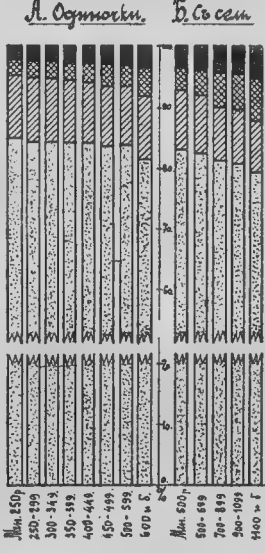 А. Одиночки. Б. Съ сем
90
80
70
20
10
0
%
Мен. 250р
250-299
300-349
350-399
400-449
450-499
500-599
600 и б.
Мен. 500р
500-699
700-899
900-1099
1100 и б